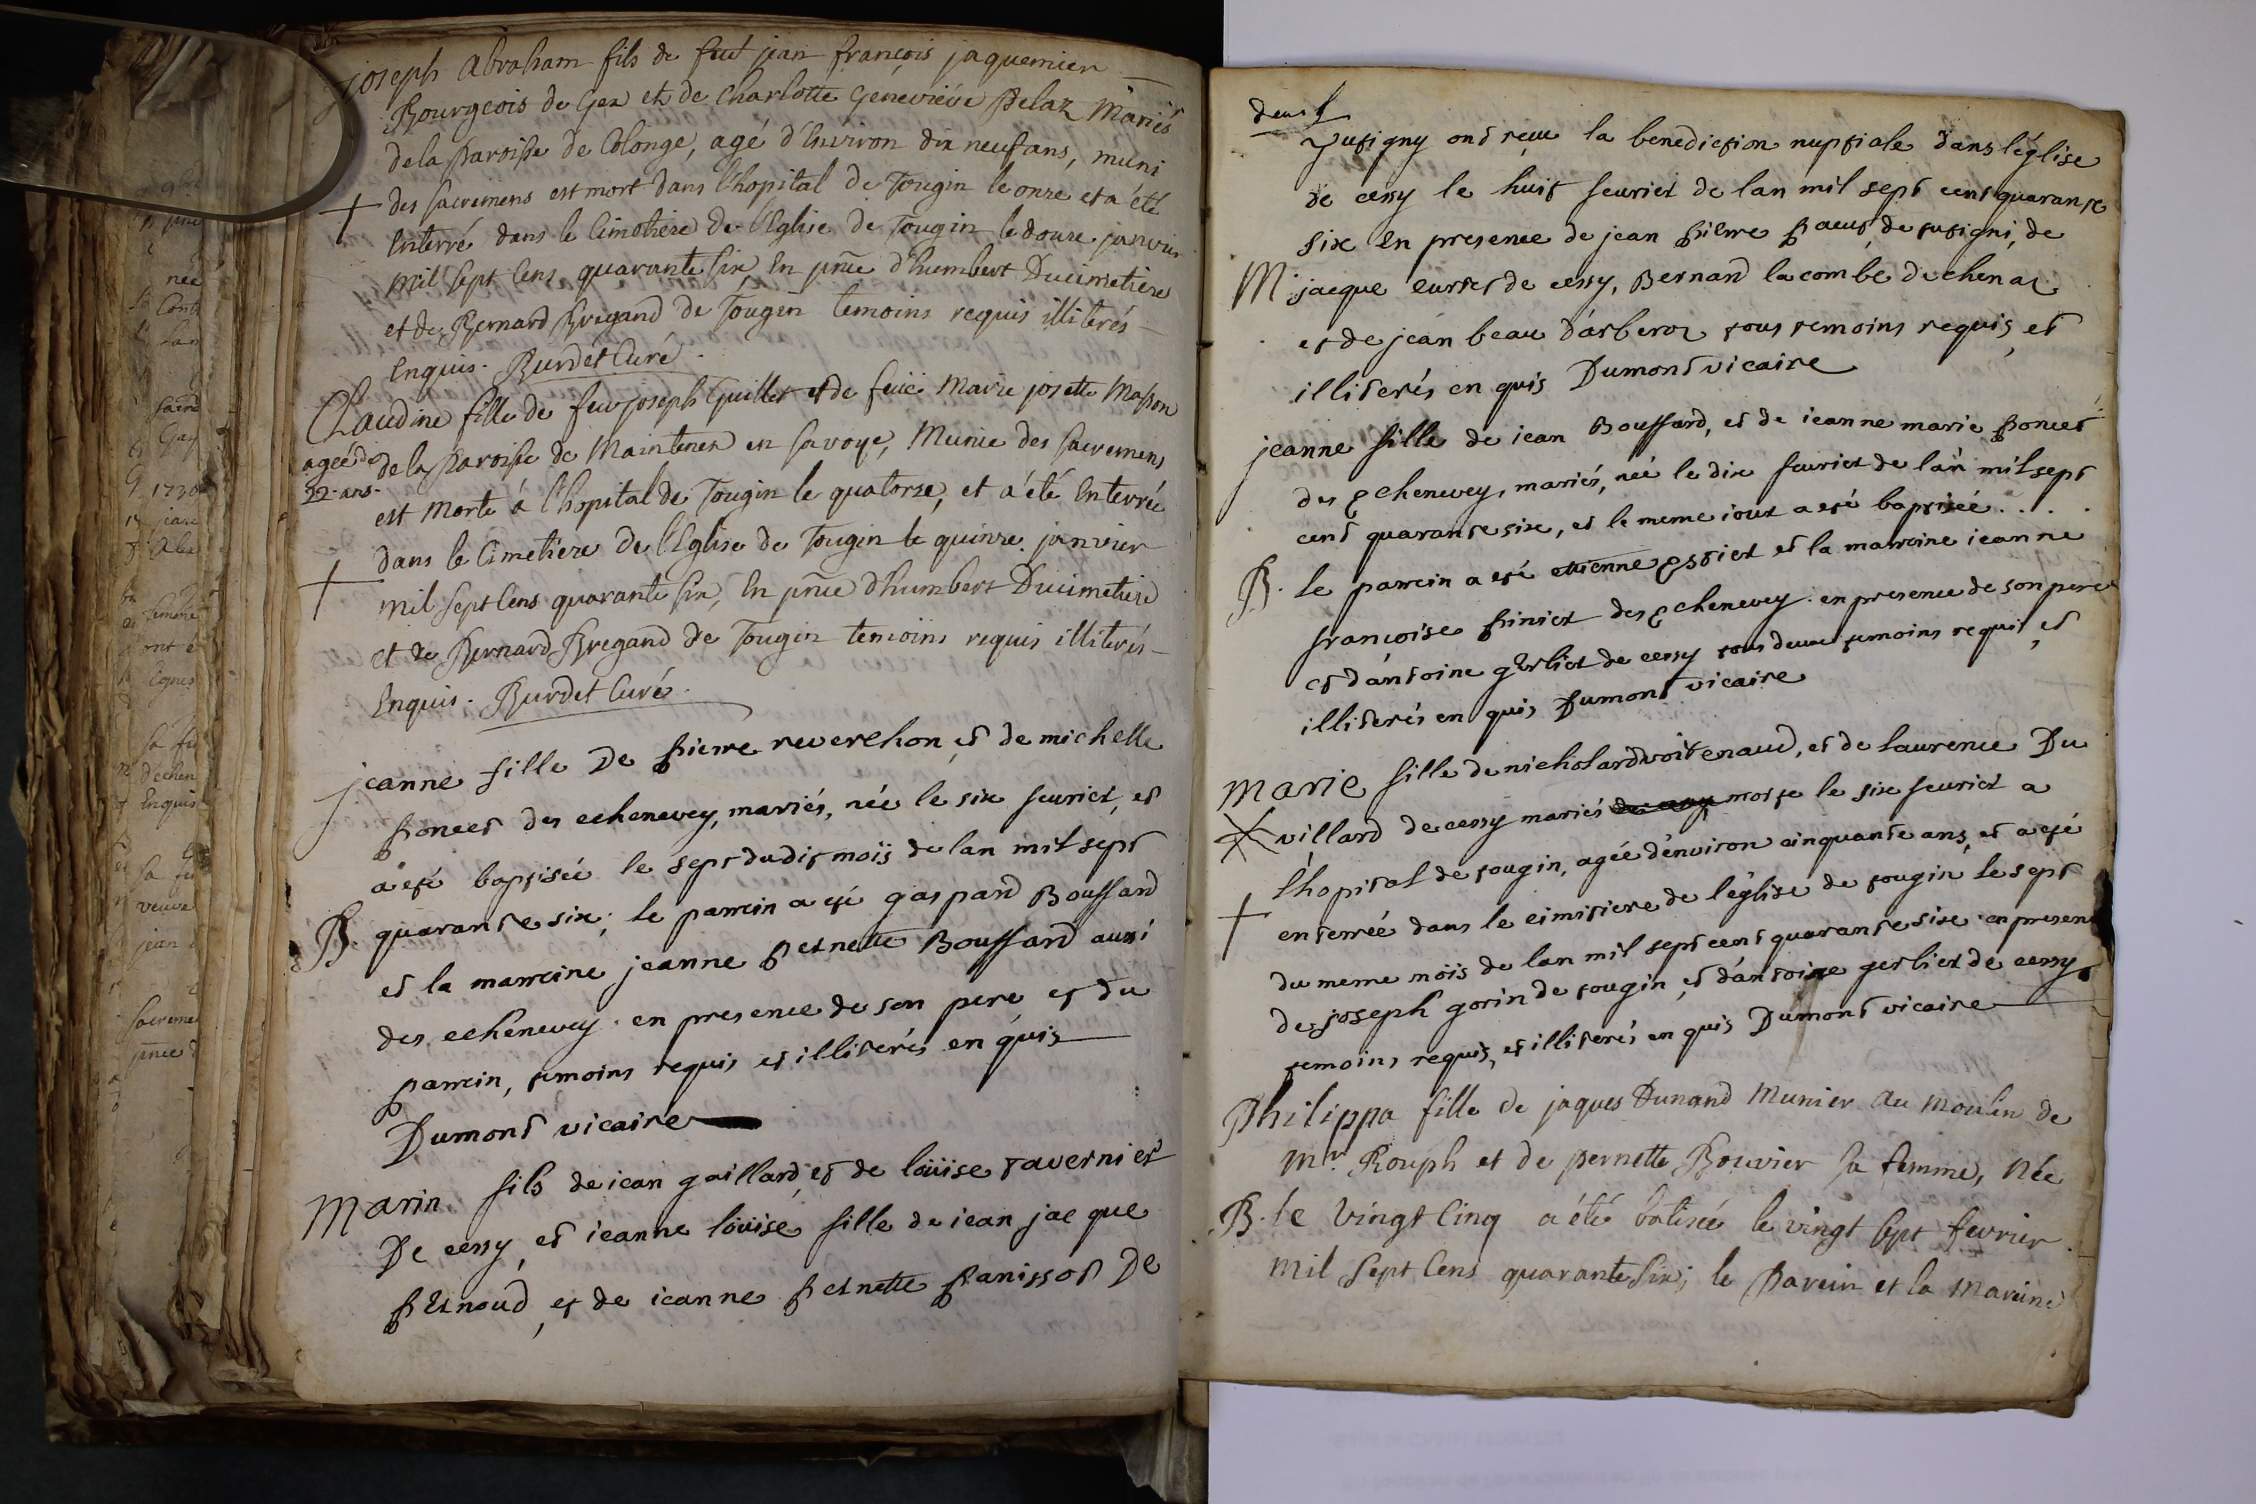 joseph Abraham fils de feu jean françois jaquemier
Bourgeois de Gex et de Charlotte Geneviéve Pelaz Mariés
de la Paroisse de Colonge, agé d'Environ dix neuf ans, muni
des sacremens est mort dans l'hopital de Tougin le onze et a été
Enterré dans le Cimetiere de l'Eglise de Tougin le douze janvier
mil sept Cens quarante six, En pnce d'humbert Ducimetiere
et de Bernard Bregand de Tougin temoins requis illiterés
Enquis. Burdet Curé.
Claudine fille de feu joseph Guillet et de feüe Marie josette Masson
agée de
32. ans.
de la Paroisse de Maintenex en Savoye, Munie des sacremens
est Morte à l'hopital de Tougin le quatorze, et a été Enterrée
dans le Cimetiere de l'Eglise de Tougin le quinze janvier
mil sept Cens quarante six, En pnce d'humbert Ducimetiere
et de Bernard Bregand de Tougin temoins requis illiterés
Enquis. Burdet Curé.
jeanne fille De pierre reverchon, et de michelle
poncet des echenevey, mariés, née le six feurier, et
a eté baptisée le sept dudit mois de lan mil sept
B. quarante six; le parrein a eté gaspard Bouffard
et la marreine jeanne pernette Bouffard aussi
des echenevey. en presence de son pere et du
parrein, temoins requis et illiterés en quis
Dumont vicaire
Marin fils de iean gaillard, et de loüise tavernier
De cessy, et ieanne loüise fille de iean jacque
pernoud, et de ieanne pernette panissot De
deus
Jutigny ont reçu la benediction nuptiale dans l'église
de cessy le huit feurier de lan mil sept cent quarante
six En presence de jean pierre de jutigni, de
M. jacque de cessy, Bernard lacombe de chenaz
et de jean beau d'arberoz tous temoins requis, et
illiterés en quis Dumont vicaire
jeanne fille de iean Bouffard, et de ieanne marie poncet
des Echenevey, mariés, née le dix feurier de lan mil sept
cent quarante six, et le meme iour a eté baptisée....
B. le parrein a eté ettienne et la marreine ieanne
françoise pinier des Echenevey. en presence de son pere
et d'antoine gerlier de cessy tous deux temoins requis, et
illiterés en quis Dumont vicaire
Marie fille de nicholard et de laurence Du
villard de cessy mariés morte le six feurier a
l'hopital de tougin, agée d'environ cinquante ans, et a eté
enterrée dans le cimitiere de l'église de tougin le sept
du meme mois de lan mil sept cent quarante six. en presence
de joseph gorin de tougin, et d'antoine gerlier de cessy
temoins requis, et illiterés en quis Dumont vicaire
Philippa fille de jaques Dunand Munier au moulin de
Mr. Rouph et de pernette Bouvier sa femme, Née
B. le Vingt Cinq a été batisée le vingt sept fevrier
mil Sept Cens quarante six; le Parein et la Mareine